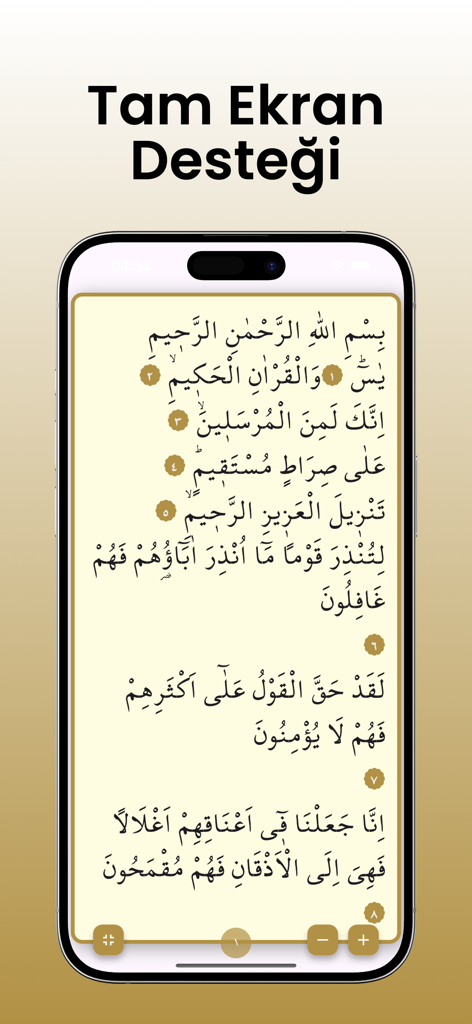 Tam Ekran
Desteği
بِسْمِ اللّٰهِ الرَّحْمٰنِ الرَّحٖيمِ
يٰسٓ ۚ ١ وَالْقُرْاٰنِ الْحَكٖيمِ ۙ ٢
اِنَّكَ لَمِنَ الْمُرْسَلٖينَ ۙ ٣
عَلٰى صِرَاطٍ مُسْتَقٖيمٍ ۜ ٤
تَنْزٖيلَ الْعَزٖيزِ الرَّحٖيمِ ۙ ٥
لِتُنْذِرَ قَوْماً مَٓا اُنْذِرَ اٰبَٓاؤُ۬هُمْ فَهُمْ
غَافِلُونَ
٦
لَقَدْ حَقَّ الْقَوْلُ عَلٰٓى اَكْثَرِهِمْ
فَهُمْ لَا يُؤْمِنُونَ
٧
اِنَّا جَعَلْنَا فٖٓى اَعْنَاقِهِمْ اَغْلَالاً
فَهِىَ اِلَى الْاَذْقَانِ فَهُمْ مُقْمَحُونَ
٨
١